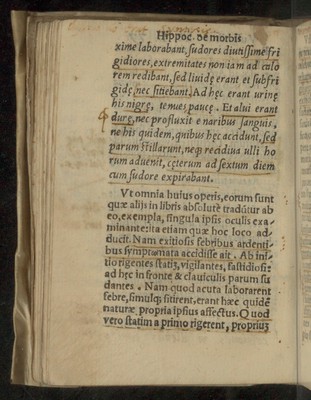 Hippoc. de morbis
xime laborabant, sudores diutissime fri
gidiores, extremitates non iam ad calo
rem redibant, sed liuidę erant et subfri
gidę, nec sitiebant. Ad hęc erant urinę
his nigrę, tenues, paucę. Et alui erant
durę, nec profluxit e naribus sanguis,
ne his quidem, quibus hęc accidunt, sed
parum stillarunt, neq; recidiua ulli ho
rum aduenit, cęterum ad sextum diem
cum sudore expirabant.
Vt omnia huius operis, eorum sunt
quæ alijs in libris absolutè tradũtur ab
eo, exempla, singula ipsis oculis exa-
minante: ita etiam quæ hoc loco ad-
ducit. Nam exitiosis febribus ardenti-
bus symptomata accidisse ait. Ab ini-
tio rigentes statiʒ, vigilantes, fastidiosi:
ad hęc in fronte & clauiculis parum su
dantes. Nam quod acuta laborarent
febre, simulq; sitirent, erant hæc quidẽ
naturæ propria ipsius affectus. Quod
vero statim a primo rigerent, propriuʒ